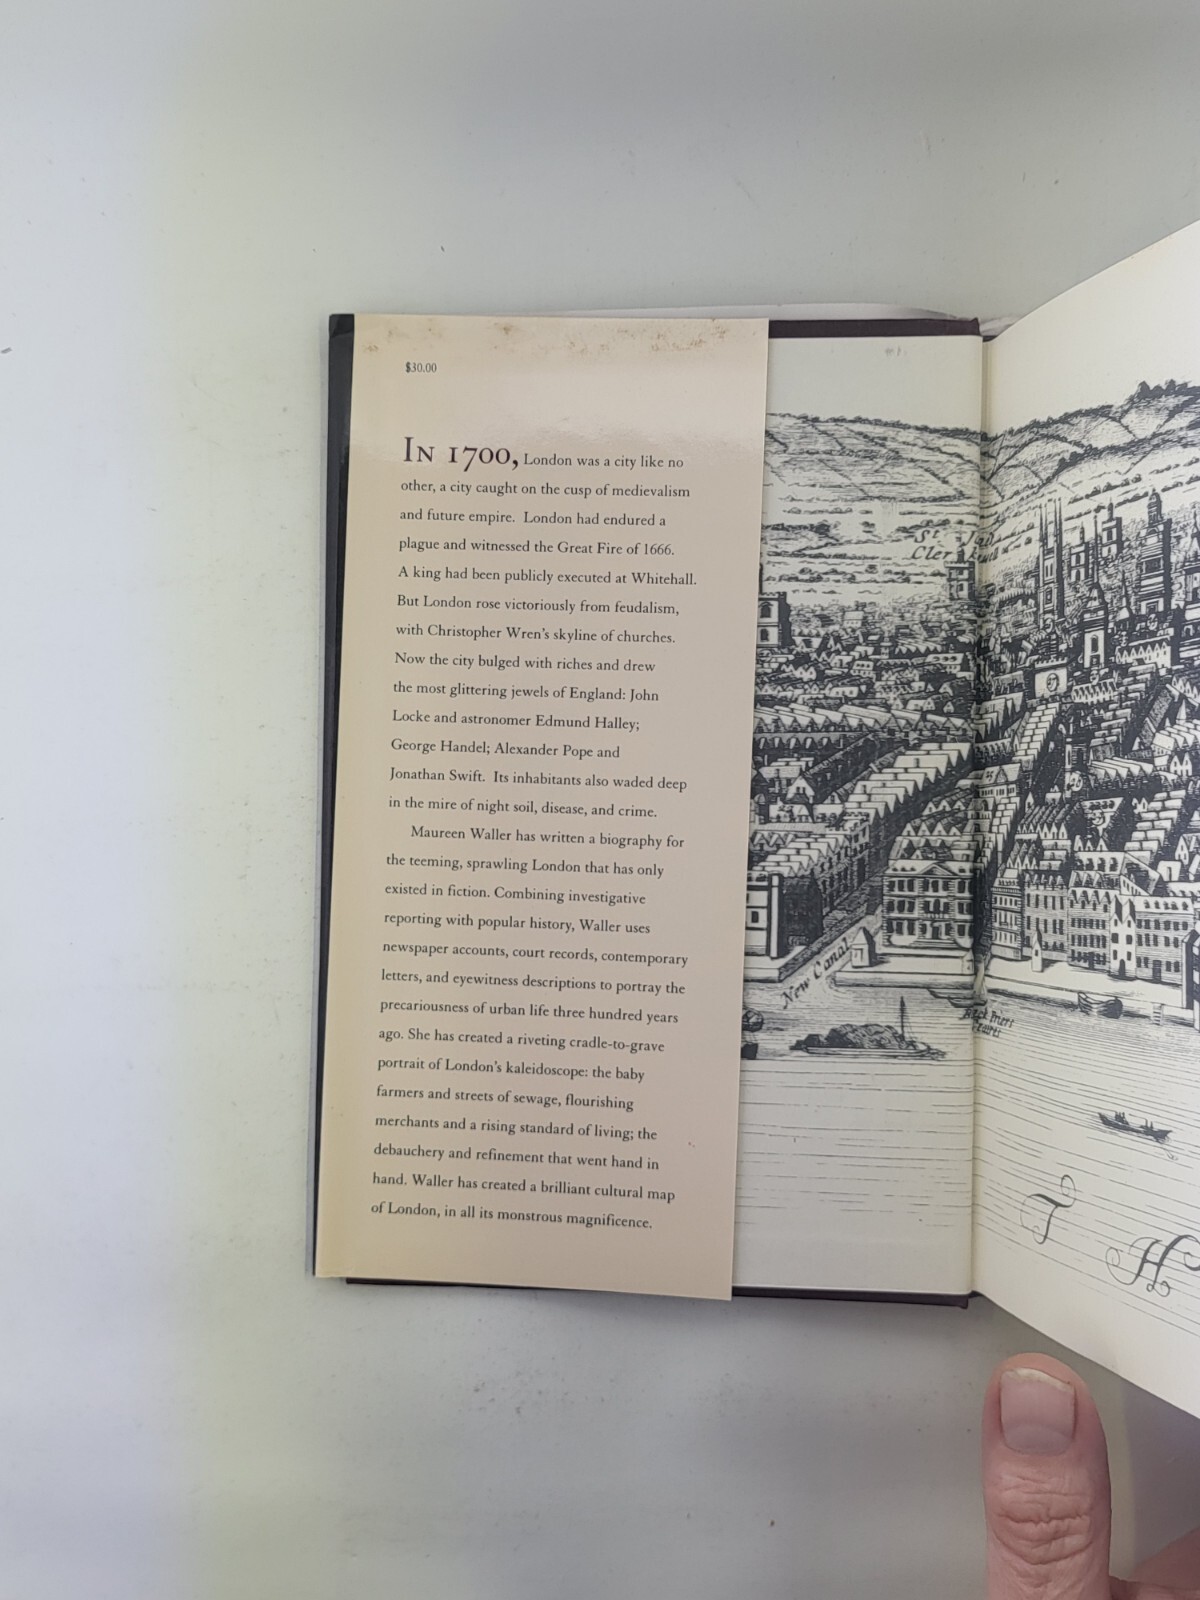 $30.00
In 1700, London was a city like no
other, a city caught on the cusp of medievalism
and future empire. London had endured a
plague and witnessed the Great Fire of 1666.
A king had been publicly executed at Whitehall.
But London rose victoriously from feudalism,
with Christopher Wren's skyline of churches.
Now the city bulged with riches and drew
the most glittering jewels of England: John
Locke and astronomer Edmund Halley;
George Handel; Alexander Pope and
Jonathan Swift. Its inhabitants also waded deep
in the mire of night soil, disease, and crime.
Maureen Waller has written a biography for
the teeming, sprawling London that has only
existed in fiction. Combining investigative
reporting with popular history, Waller uses
newspaper accounts, court records, contemporary
letters, and eyewitness descriptions to portray the
precariousness of urban life three hundred years
ago. She has created a riveting cradle-to-grave
portrait of London's kaleidoscope: the baby
farmers and streets of sewage, flourishing
merchants and a rising standard of living; the
debauchery and refinement that went hand in
hand. Waller has created a brilliant cultural map
of London, in all its monstrous magnificence.
St
New Canal
T H